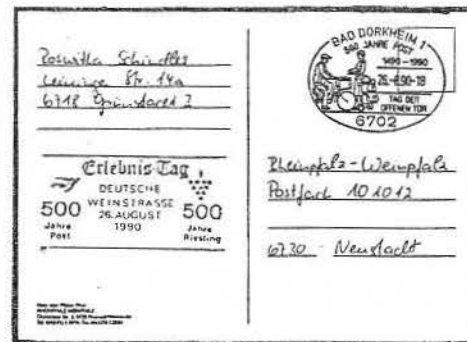 Roswitha Schindler
Leininger Str. 14a
6718 Grünstadt 2
Erlebnis Tag
DEUTSCHE
WEINSTRASSE
26. AUGUST
1990
500
Jahre
Post
500
Jahre
Riesling
BAD DÜRKHEIM 1
500 JAHRE POST
1490-1990
26.-8.90-18
TAG DER
OFFENEN TÜR
6702
Rheinpfalz-Weinpfalz
Postfach 10 10 12
6730 Neustadt